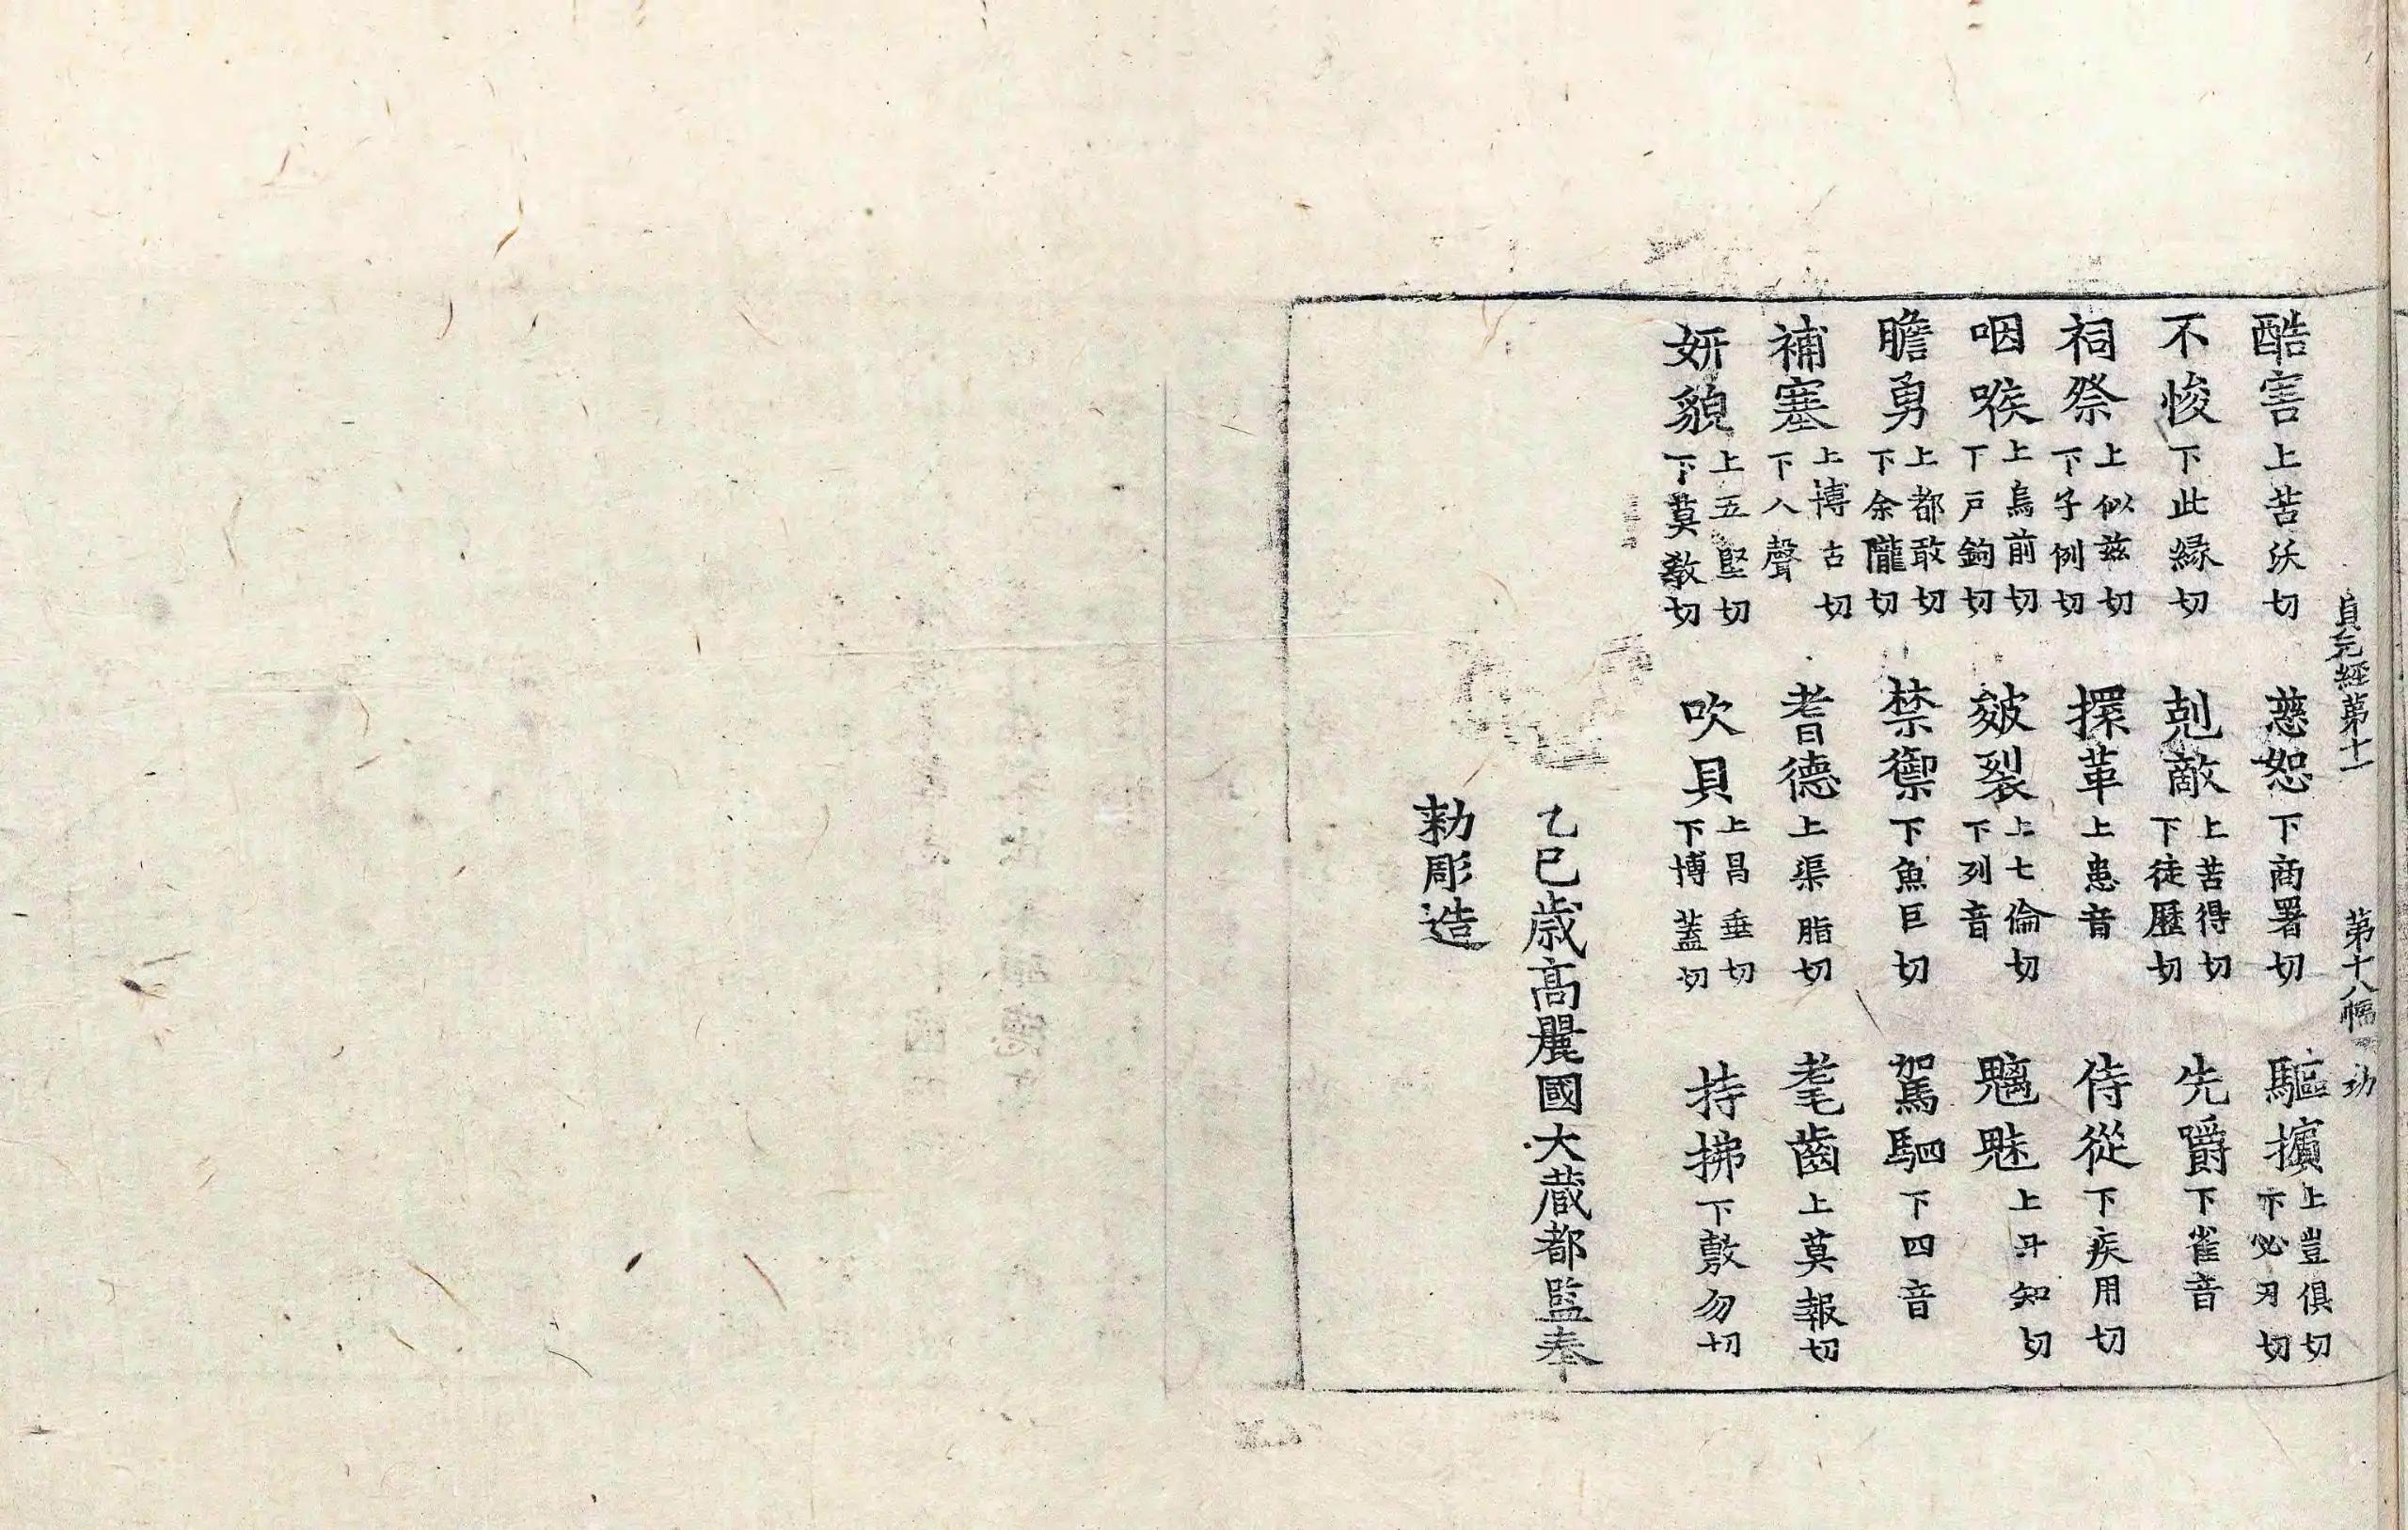 貞元經第十一 第十八幅 功
酷害上苦沃切 慈恕下商署切 驅擯上豈俱切下必刃切
不悛下此緣切 剋敵上苦得切下徒歷切 先爵下雀音
祠祭上似兹切下子例切 擐革上患音 侍從下疾用切
咽喉上烏前切下戸鉤切 皴裂上七倫切下列音 魑魅上丑知切
膽勇上都敢切下余隴切 禁禦下魚巨切 駕駟下四音
補塞上博古切下八聲 耆德上渠脂切 耄齒上莫報切
妍貌上五堅切下莫教切 吹貝上昌垂切下博蓋切 持拂下敷勿切
乙巳歳高麗國大藏都監奉
勑彫造